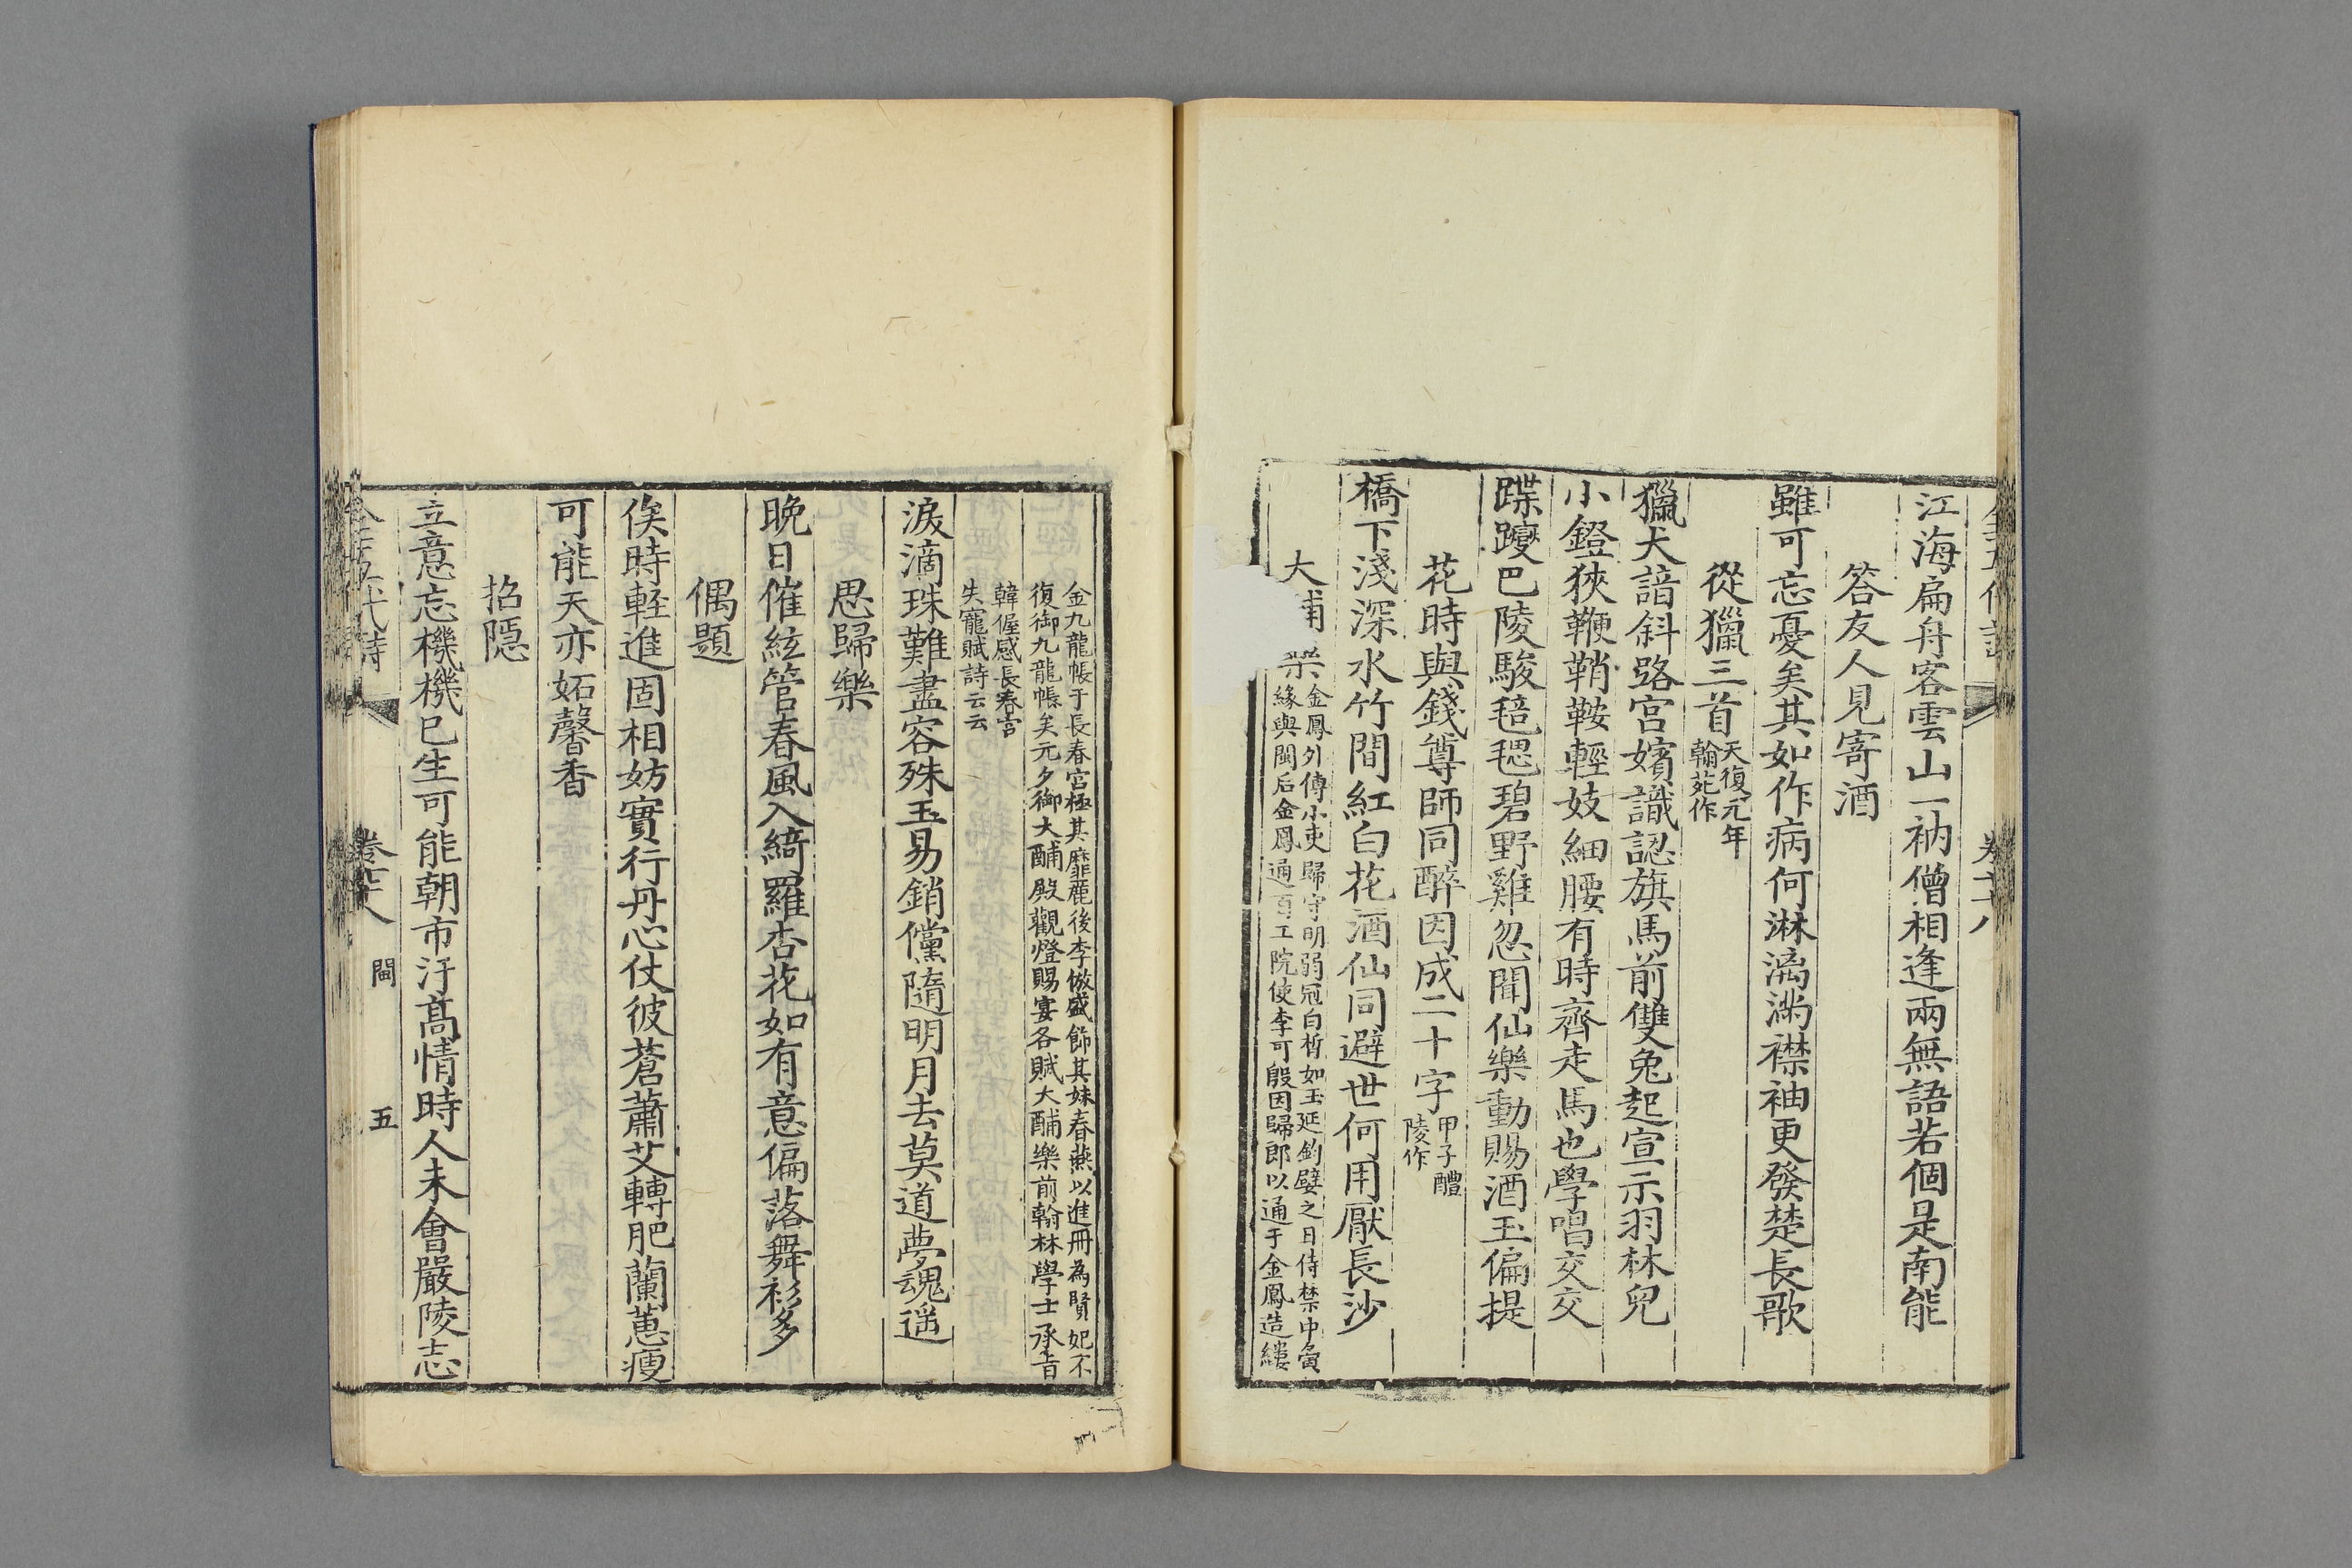 江海扁舟客雲山一衲僧相逢兩無語若個是南能
答友人見寄酒
雖可忘憂矣其如作病何淋漓滿襟袖更發楚長歌
從獵三首天復元年翰苑作
獵犬諳斜路宮嬪識認旗馬前雙兔起宣示羽林兒
小鐙狹鞭鞘鞍輕妓細腰有時齊走馬也學唱交交
蹀躞巴陵駿毰毸碧野雞忽聞仙樂動賜酒玉偏提
花時與錢尊師同醉因成二十字甲子醴陵作
橋下淺深水竹間紅白花酒仙同避世何用厭長沙
大酺樂
金鳳外傳小吏歸守明弱冠白晳如玉延鈞嬖之日侍禁中夤
緣與閩后金鳳通百工院使李可殷因歸郎以通于金鳳造縷
金九龍帳于長春宮極其靡麗後李倣盛飾其妹春燕以進冊為賢妃不
復御九龍帳矣元夕御大酺殿觀燈賜宴各賦大酺樂前翰林學士承旨
韓偓感長春宮
失寵賦詩云云
淚滴珠難盡容殊玉易銷儻隨明月去莫道夢魂遥
思歸樂
晚日催絃管春風入綺羅杏花如有意偏落舞衫多
偶題
俟時輕進固相妨實行丹心仗彼蒼蕭艾轉肥蘭蕙瘦
可能天亦妬馨香
招隱
立意忘機機已生可能朝市汙高情時人未會嚴陵志
卷七十八 閩 五